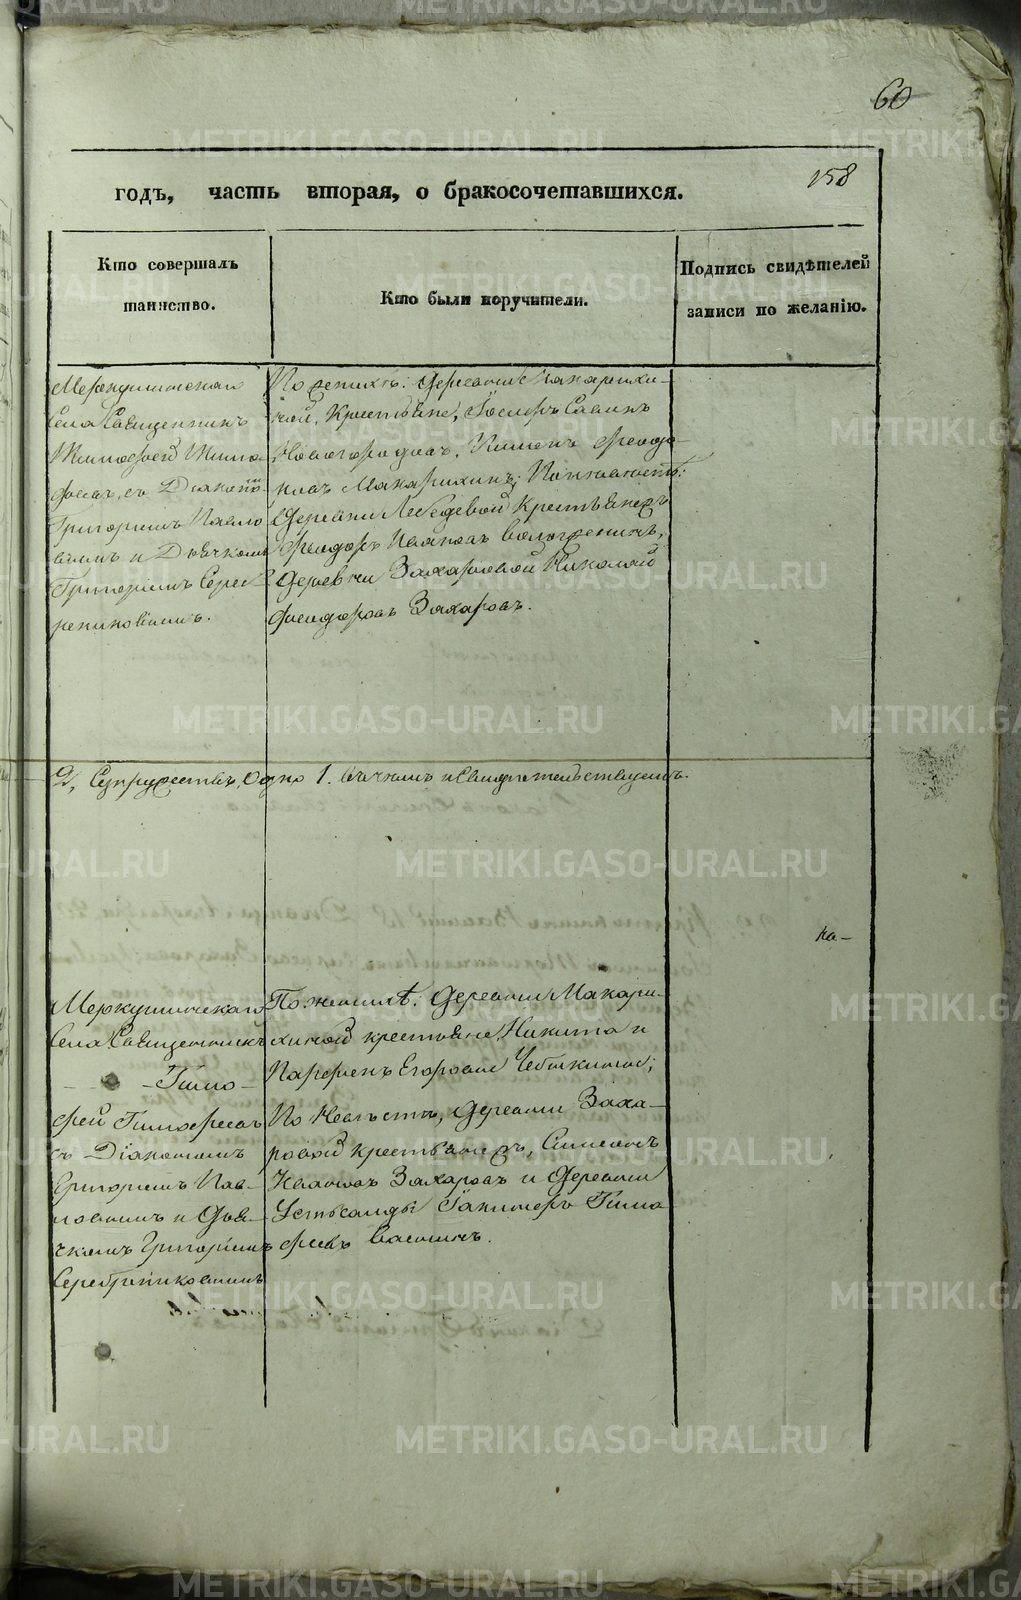 60
158
годъ, часть вторая, о бракосочетавшихся.
Кто совершалъ
таинство.
Кто были поручители.
Подпись свидѣтелей
записи по желанію.
Меркушинскаго
Села Священникъ
Тимофей Тимо-
феевъ, съ Діакономъ
Григоріемъ Павло
вымъ и Дьячкомъ
Григоріемъ Сереб
рениковымъ.
По женихѣ: Деревни Макарихи-
ной, Крестьяне,
Новогородовъ, Пименъ Феодо-
ровъ Макарихинъ; По невѣстѣ:
Деревни Лебедевой Крестьянинъ
Феодоръ Ивановъ
Деревни Захаровой Николай
Феодоровъ Захаровъ.
Супружествъ, Одно 1. вѣчимъ и Свидѣтельствуемъ.
на-
Меркушинскаго
Села Священникъ
Тимо-
фей Тимофеевъ
съ Діакономъ
Григоріемъ Пав-
ловымъ и Дья-
чкомъ Григоріемъ
Серебрениковымъ
По женихѣ: Деревни Макари-
хиной крестьяне, Никита и
Парфенъ Егоровы Чебыкины;
По Невѣстѣ, Деревни Заха-
ровой крестьянинъ, Симеонъ
Ивановъ Захаровъ и Деревни
Устьсалды Тимо
феевъ
METRIKI.GASO-URAL.RU